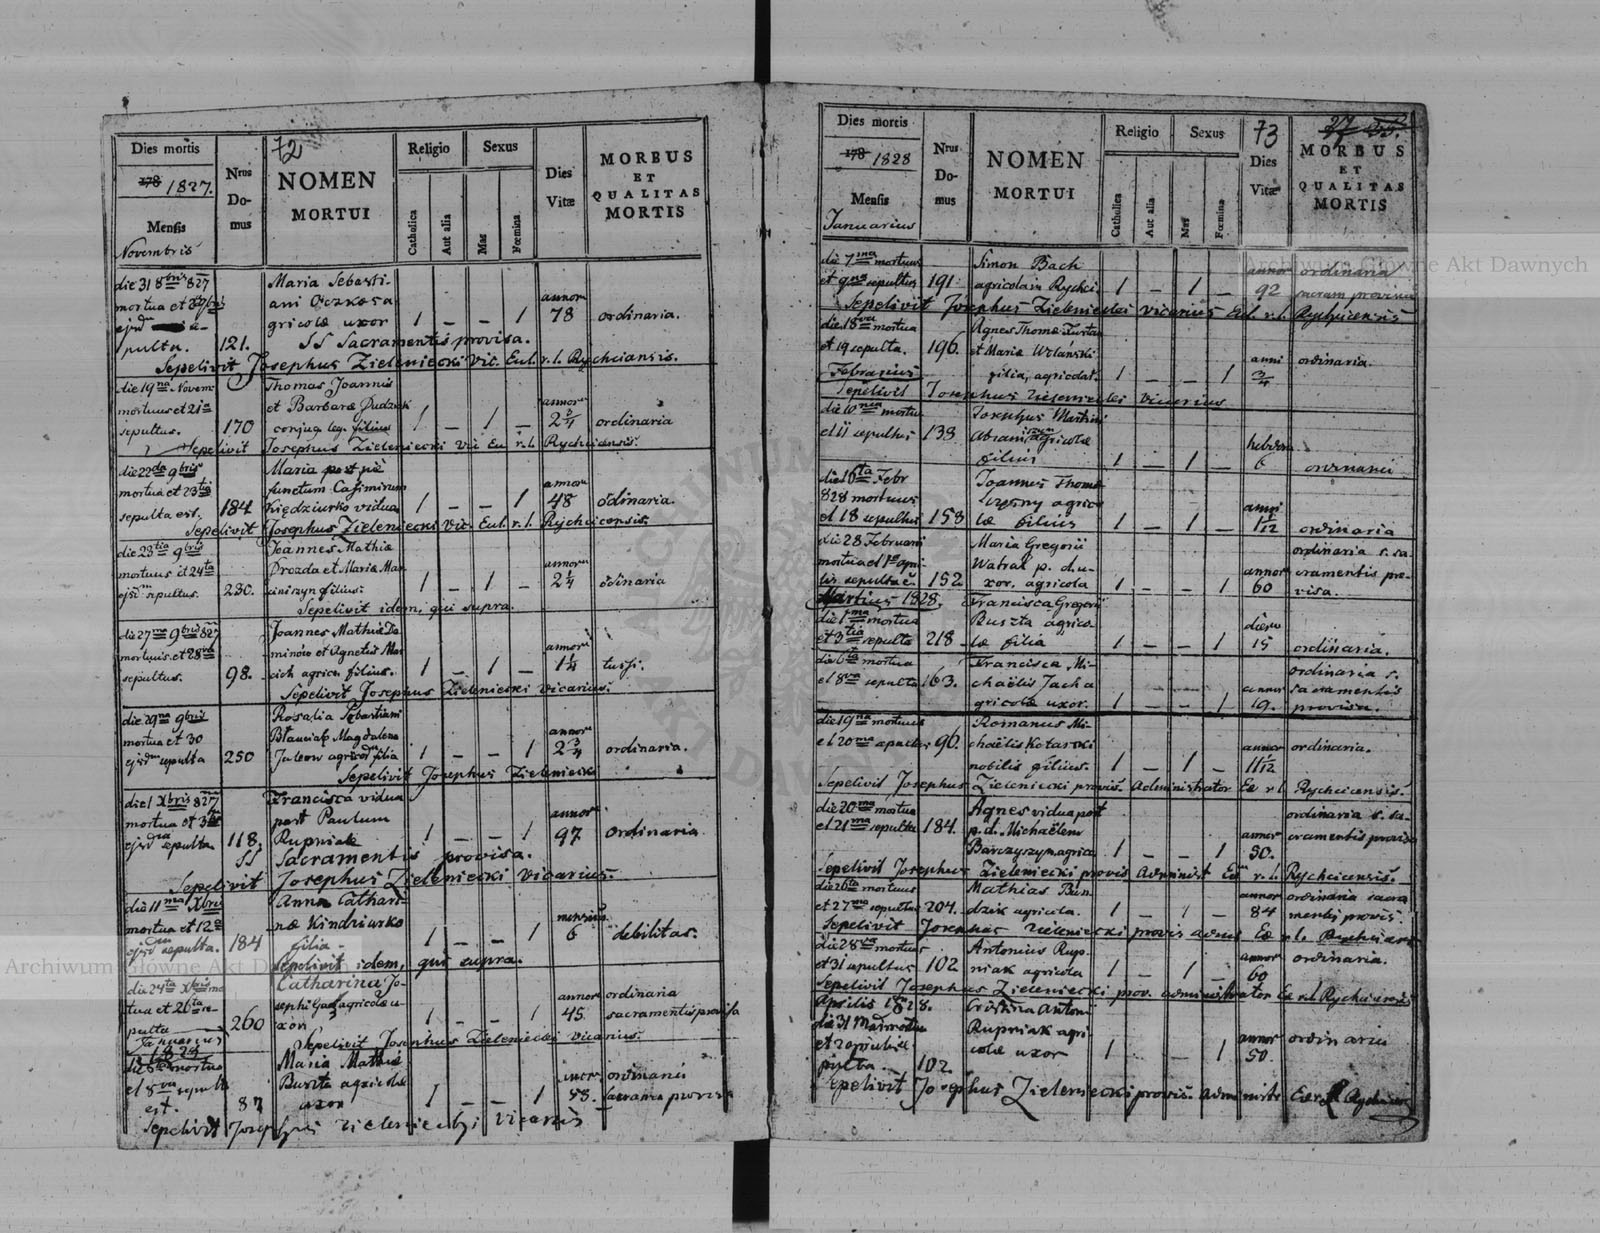 72
Dies mortis
178 1827.
Mensis
Novembris
Nrus
Do-
mus
NOMEN
MORTUI
Religio
Catholica
Aut alia
Sexus
Mas
Fœmina
Dies
Vitæ
MORBUS
ET
QUALITAS
MORTIS
die 31 8bris 827
mortua et
ejsd
pulta. 121.
Maria Sebasti-
ani Oczkosa
gricolæ uxor 1 – – 1 annor 78 ordinaria.
SS Sacramentis provisa.
Sepelivit Josephus Zieleniecki Vic. Eul. r. l. Rychciensis.
die 19na Novem
mortuus et 21
sepultus. 170
Thomas Joannis
et Barbaræ Dudziak
conjug. leg. filius 1 – 1 – annor 2 3/4 ordinaria
Sepelivit Josephus Zieleniecki Vic Eu r. l. Rychciensis.
die 22da 9bris
mortua et 23tia
sepulta est. 184
Maria post
functum Casimirum
Kiędziurko vidua 1 – – 1 annor 48 odinaria.
Sepelivit Josephus Zieleniecki Vic. Eul. r. l. Rychcicensis.
die 23tia 9bris
mortuus et 24ta
ejsd sepultus. 230.
Joannes Mathiæ
Drozda et Mariæ Mar-
ciniszyn filius: 1 – 1 – annor 2 1/4 odinaria
Sepelivit idem, qui supra.
die 27ma 9bris 827
mortuus et 28va
sepultus. 98.
Joannes Mathiæ Do
minów et Agnetis Mar
cich agricu. filius. 1 – 1 – annor 1 1/4 tussi.
Sepelivit Josephus Zieleniecki Vicarius.
die 29na 9bris
mortua et 30
ejsdem sepulta 250
Rosalia Sebastiani
Magdalena
agricol filia 1 – – 1 annor 2 3/4 ordinaria.
Sepelivit Josephus Zieleniecki
die 1 Xbris 827
mortua et 3tia
ejsd sepulta 118.
Francisca vidua
post Paulum
Rupniak 1 – – 1 annor 97 ordinaria
SS Sacramentis provisa.
Sepelivit Josephus Zieleniecki Vicarius.
die 11ma Xbris
mortua et 12a
ejsd sepulta. 184
Anna Cathari-
næ Kindziurko
filia. 1 – – 1 mensium 6 debilitas.
Sepelivit idem, qui supra.
die 24ta Xbris mor
tua et 26ta se-
pulta 260
Catharina Jo-
sephi agricolæ u-
xor. 1 – – 1 annor 45. ordinaria
sacramentis provisa
Sepelivit Josephus Zieleniecki Vicarius.
Januarius
1828
die 6ta mortua
et 8va sepulta
est. 87
Maria Mathiæ
Buszta agricolæ
uxor 1 – – 1 58. ordinaria
sacramen provis
Sepelivit Josephus Zieleniecki Vicarius
73
Dies mortis
178 1828
Mensis
Januarius
Nrus
Do-
mus
NOMEN
MORTUI
Religio
Catholica
Aut alia
Sexus
Mas
Fœmina
Dies
Vitæ
MORBUS
ET
QUALITAS
MORTIS
die 7ma mortuus
et 9na sepultus 191
Simon Bach
agricola in Rychci. 1 – 1 – annor 92 ordinaria
sacram provisus
Sepelivit Josephus Zieleniecki Vicarius Eul. r. l. Rychcicensis
die 18va mortua
et 19 sepulta. 196.
Agnes Thomæ
et Mariæ Wzlański
filia, agricolar. 1 – – 1 anni 3/4 ordinaria.
Februarius
Sepelivit Josephus Zieleniecki Vicarius
die 10ma mortuu
et 11 sepultus 138
Josephus Martini
Abram agricolæ
filius 1 – 1 – hebdom 6 ordinaria
die 16ta Febr
828 mortuus
et 18 sepultus 158
Joannes Thomæ
agrico
læ filius 1 – 1 – anni 1 1/12 ordinaria
die 28 Februarii
mortua et
sepulta 152
Maria Gregorii
Watral p. d. u-
xor. agricola 1 – – 1 annor 60 ordinaria s. sa-
cramentis pro-
visa.
Martius 1828.
die 1ma mortua
et 3tia sepulta 218
Francisca Gregorii
Buszta agrico-
læ filia 1 – – 1 dierum 15 ordinaria.
die 6ta mortua
et 8va sepulta 163.
Francisca Mi-
chaëlis Jacha
gricolæ uxor. 1 – – 1 annor 19. ordinaria s.
sacramentis
provisa.
die 19na mortuus
et 20ma sepultus 96.
Romanus Mi-
chaëlis Kotarski
nobilis filius. 1 – 1 – annor 11/12 ordinaria.
Sepelivit Josephus Zieleniecki provis. Administrator Ec r. l. Rychcicensis.
die 20ma mortua
et 21ma sepulta 184.
Agnes vidua post
p. d. Michaëlem
Barczyszyn, agrico 1 – – 1 annor 50. ordinaria s. sa-
cramentis provisa
Sepelivit Josephus Zieleniecki provis Administ Ec r. l. Rychcicensis.
die 26ta mortuus
et 27ma sepultus 204.
Mathias Bun
dzik agricola. 1 – 1 – annor 84 ordinaria sacra
mentis provis.
Sepelivit Josephus Zieleniecki provis Ec r. l.
die 28va mortuus
et 31 sepultus 102
Antonius Rup-
niak agricola 1 – 1 – annor 60 ordinaria.
Sepelivit Josephus Zieleniecki prov. administrator Ec r. l. Rychcicensis
Aprilis 1828.
die 31 Mar mortua
102
Cristina Antoni
Rupniak agri-
colæ uxor 1 – – 1 annor 50. ordinaria
Sepelivit Josephus Zieleniecki provis. Administr
Archiwum Główne Akt Dawnych
Archiwum Główne Akt Dawnych